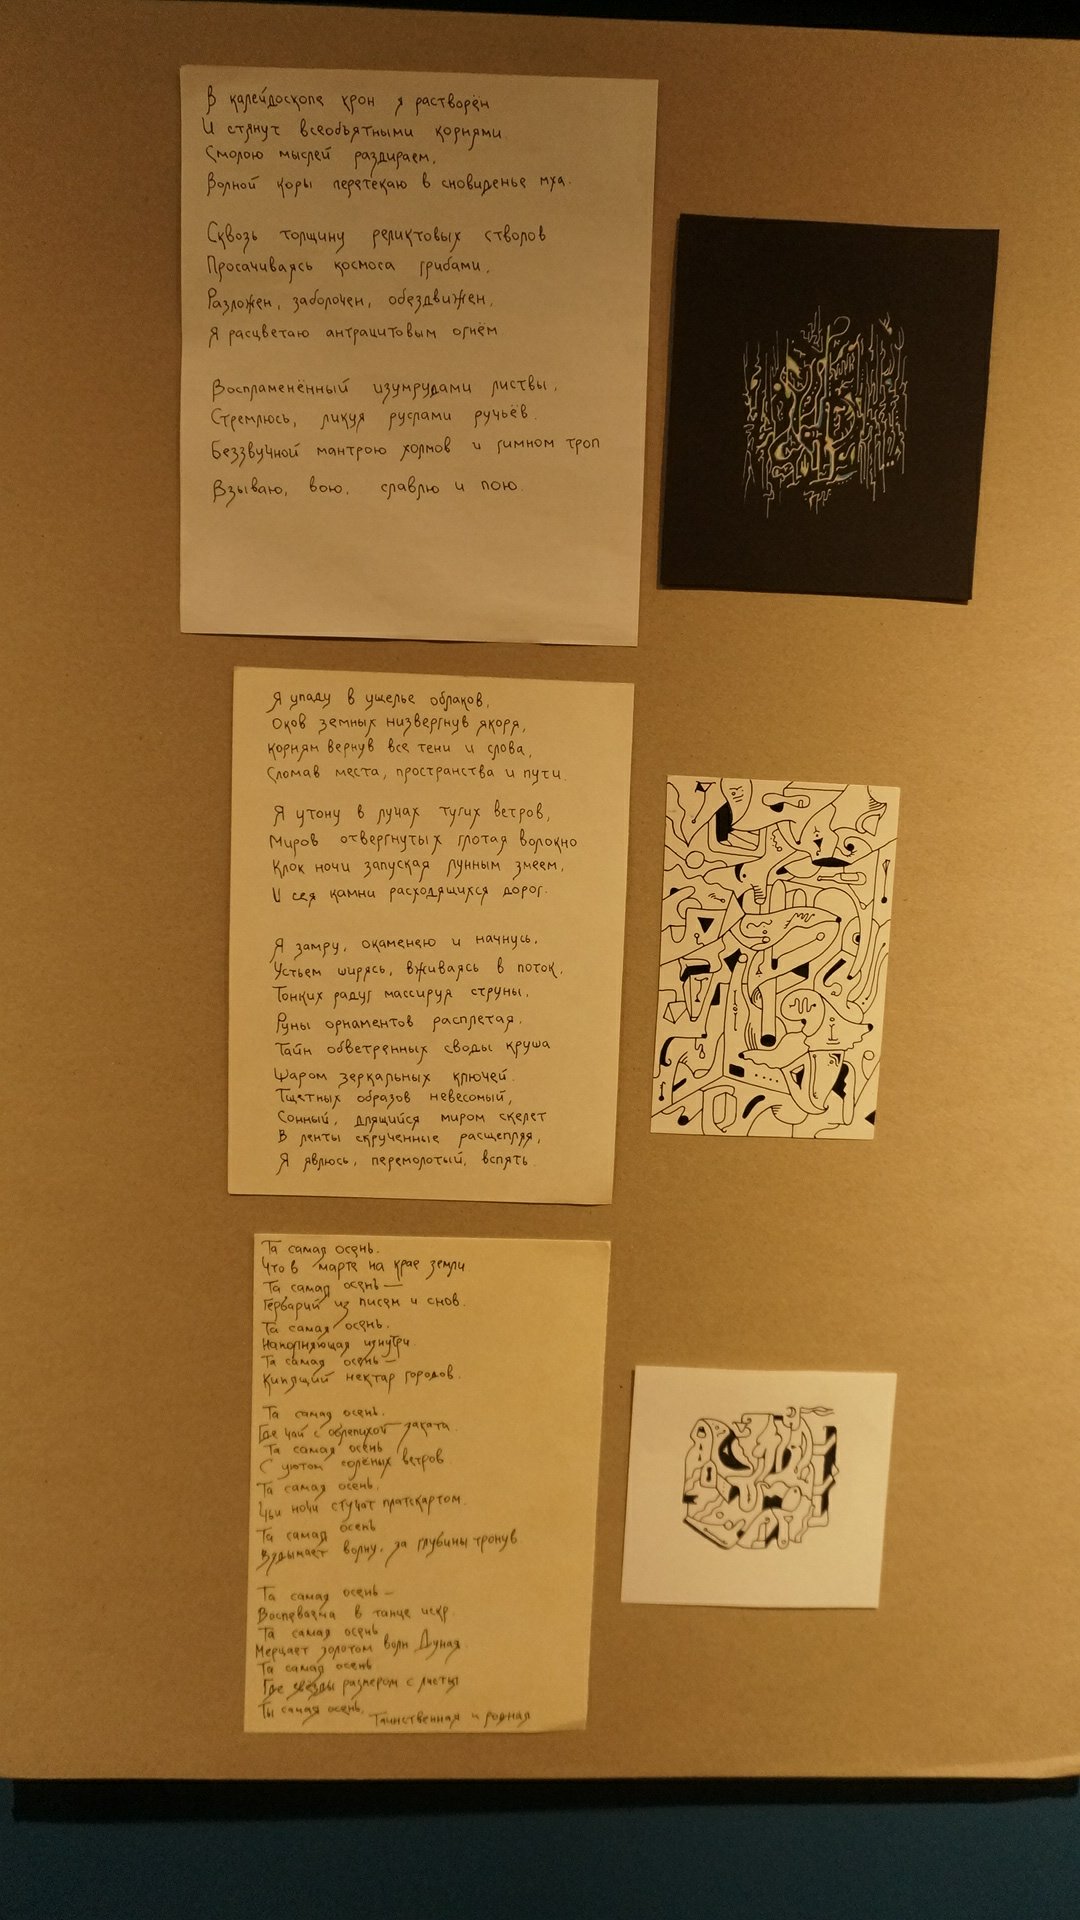 В калейдоскопе крон я растворён
И стянут всеобъятными корнями.
Смолою мыслей раздираем,
Волной коры перетекаю в сновиденье мха.
Сквозь толщину реликтовых стволов
Просачиваясь космоса грибами,
Разложен, заболочен, обездвижен,
Я расцветаю антрацитовым огнём
Воспламенённый изумрудами листвы,
Стремлюсь, ликуя руслами ручьёв.
Беззвучной мантрою холмов и гимном троп
Взываю, вою, славлю и пою.
Я упаду в ущелье облаков,
Оков земных низвергнув якоря,
Корням вернув все тени и слова,
Сломав места, пространства и пути.
Я утону в лучах тугих ветров,
Миров отвергнутых глотая волокно
Клок ночи запуская лунным змеем,
И сея камни расходящихся дорог.
Я замру, окаменею и начнусь,
Устьем ширясь, вживаясь в поток,
Тонких радуг массируя струны,
Руны орнаментов расплетая.
Тайн обветренных своды круша
Шаром зеркальных ключей.
Тщетных образов невесомый,
Сонный, длящийся миром скелет
В ленты скрученные расщепляя,
Я явлюсь, перемолотый, вспять.
Та самая осень.
Что в марте на крае земли
Та самая осень —
Гербарий из писем и снов.
Та самая осень.
Наполняющая изнутри.
Та самая осень —
Кипящий нектар городов.
Та самая осень.
Где чай с облепихой заката.
Та самая осень
С уютом солёных ветров
Та самая осень.
Чьи ночи стучат плацкартом.
Та самая осень
Вздымает волну, за глубины тронув.
Та самая осень —
Воспеваема в танце искр.
Та самая осень
Мерцает золотом волн Дуная
Та самая осень
Где звёзды размером с листья
Ты самая осень.
Таинственная и родная